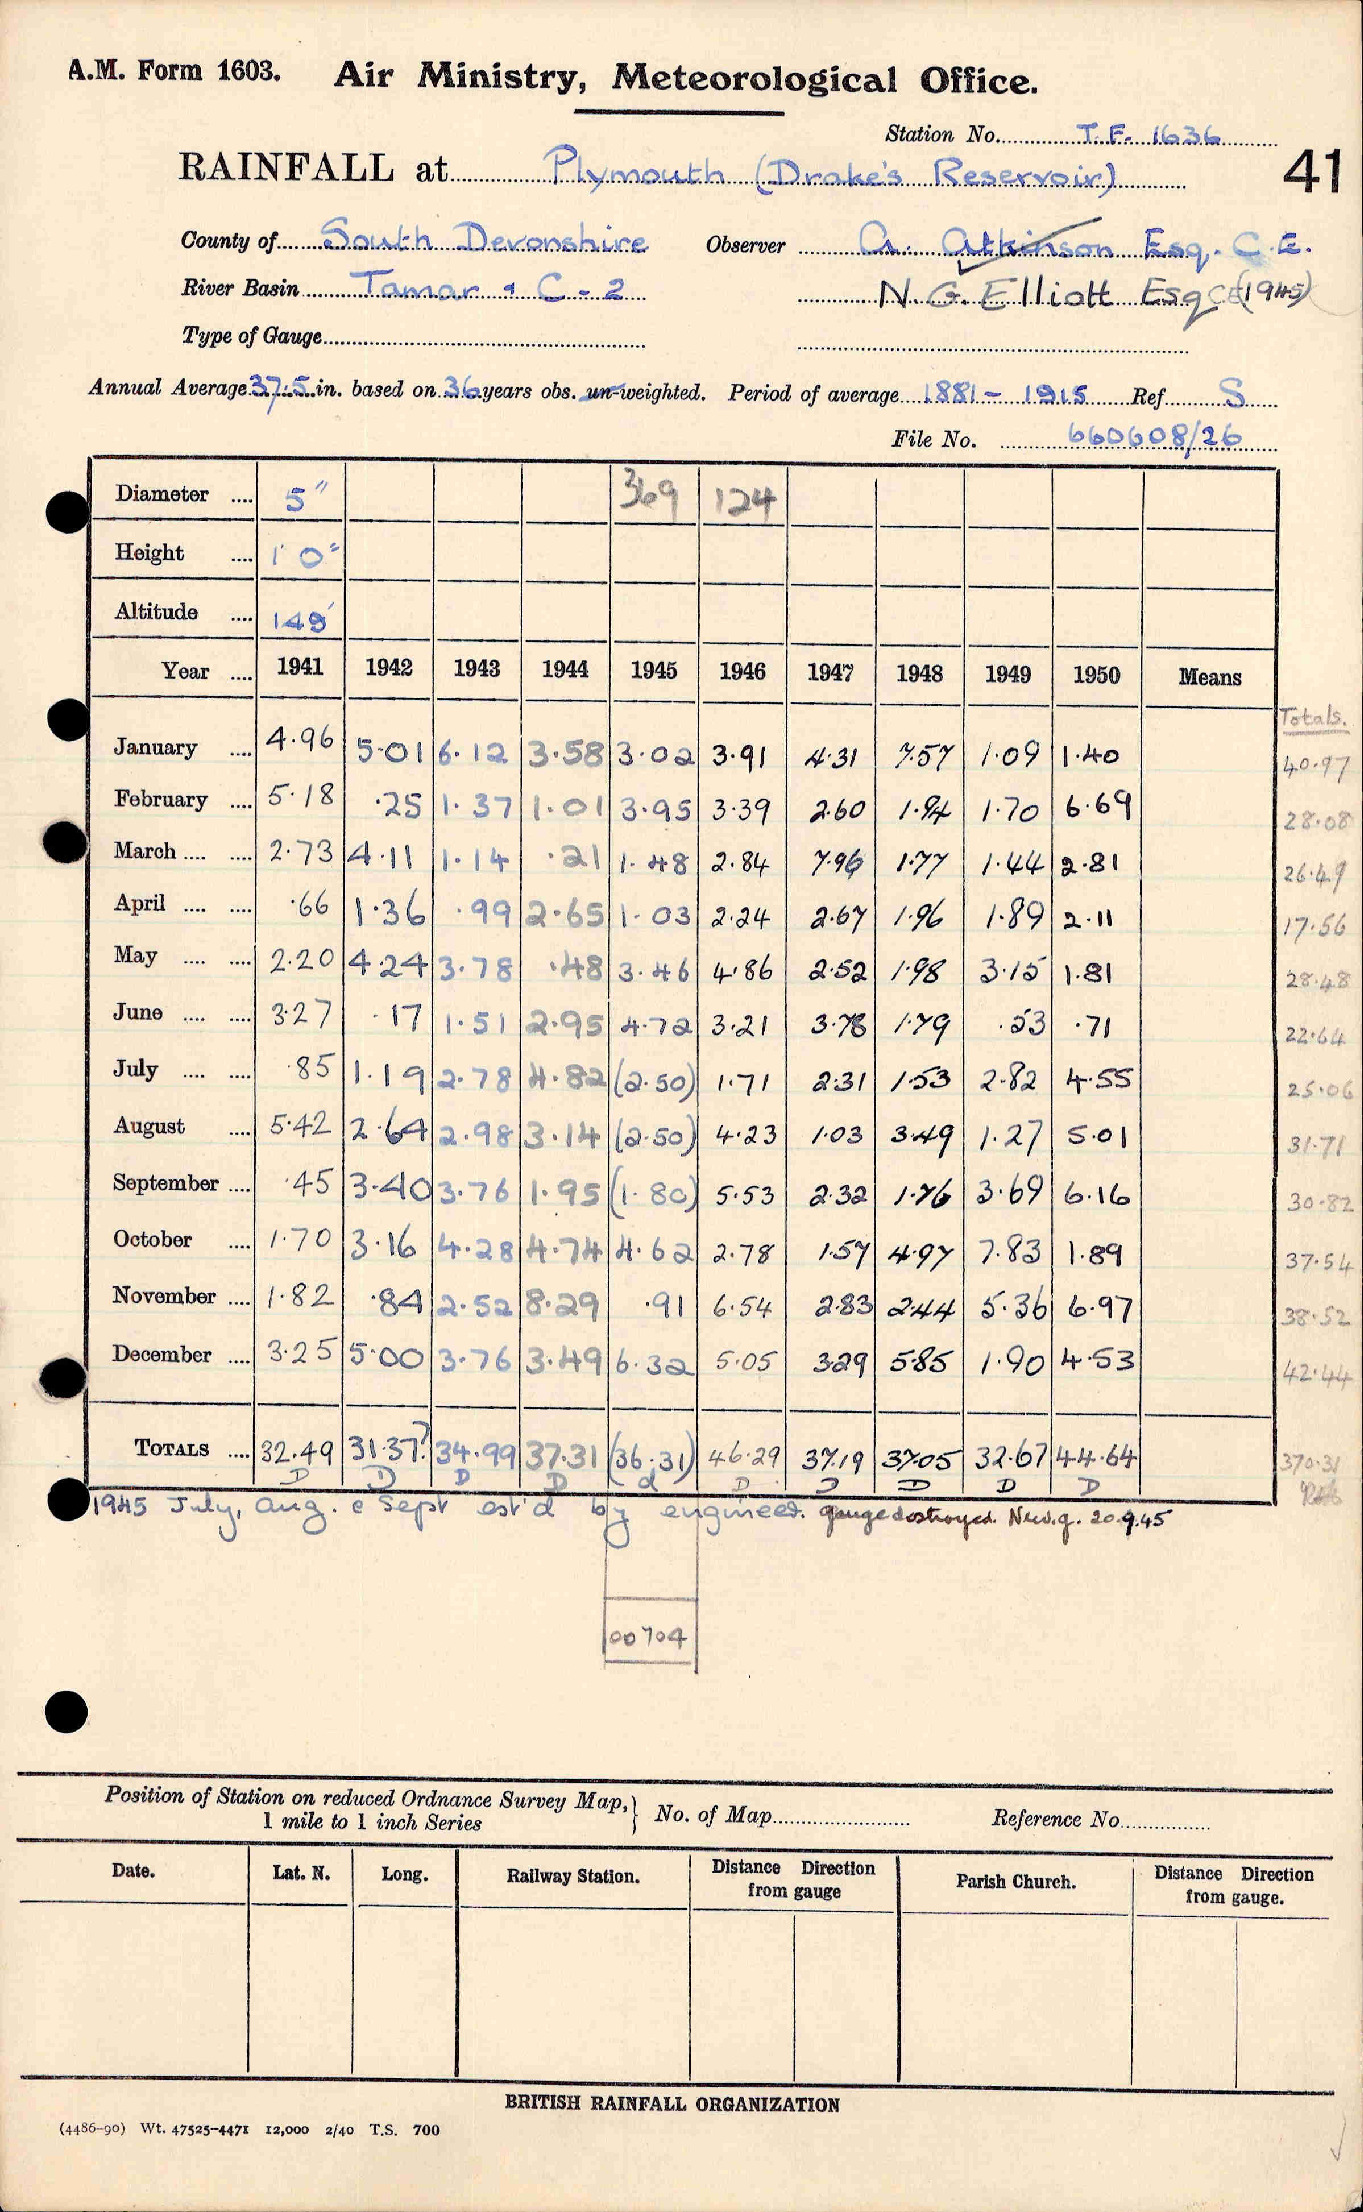 A.M. Form 1603. Air Ministry, Meteorological Office.
Station No. T.F. 1636
RAINFALL at Plymouth (Drake's Reservoir)
41
County of South Devonshire Observer A. Atkinson Esq. C.E.
River Basin Tamar & C - 2 N. G. Elliott Esq CE (1945)
Type of Gauge
Annual Average 37.5 in. based on 36 years obs. un-weighted. Period of average 1881 - 1915 Ref S
File No. 660608/26
Diameter .... 5" 369 124
Height .... 1' 0"
Altitude .... 149'
Year .... 1941 1942 1943 1944 1945 1946 1947 1948 1949 1950 Means
Totals.
January .... 4.96 5.01 6.12 3.58 3.02 3.91 4.31 7.57 1.09 1.40 40.97
February .... 5.18 .25 1.37 1.01 3.95 3.39 2.60 1.94 1.70 6.69 28.08
March .... .... 2.73 4.11 1.14 .21 1.48 2.84 7.96 1.77 1.44 2.81 26.49
April .... .... .66 1.36 .99 2.65 1.03 2.24 2.67 1.96 1.89 2.11 17.56
May .... .... 2.20 4.24 3.78 .48 3.46 4.86 2.52 1.98 3.15 1.81 28.48
June .... .... 3.27 .17 1.51 2.95 4.72 3.21 3.78 1.79 .53 .71 22.64
July .... .... .85 1.19 2.78 4.82 (2.50) 1.71 2.31 1.53 2.82 4.55 25.06
August .... 5.42 2.64 2.98 3.14 (2.50) 4.23 1.03 3.49 1.27 5.01 31.71
September .... .45 3.40 3.76 1.95 (1.80) 5.53 2.32 1.76 3.69 6.16 30.82
October .... 1.70 3.16 4.28 4.74 4.62 2.78 1.57 4.97 7.83 1.89 37.54
November .... 1.82 .84 2.52 8.29 .91 6.54 2.83 2.44 5.36 6.97 38.52
December .... 3.25 5.00 3.76 3.49 6.32 5.05 3.29 5.85 1.90 4.53 42.44
TOTALS .... 32.49 31.37? 34.99 37.31 (36.31) 46.29 37.19 37.05 32.67 44.64 370.31
D D D D d D D D D D
1945 July, Aug. & Sept est'd by engineer. gauge destroyed. New g. 20.9.45
00704
Position of Station on reduced Ordnance Survey Map, } No. of Map Reference No
1 mile to 1 inch Series
Date. Lat. N. Long. Railway Station. Distance Direction from gauge Parish Church. Distance Direction from gauge.
BRITISH RAINFALL ORGANIZATION
(4486-90) Wt. 47525-4471 12,000 2/40 T.S. 700